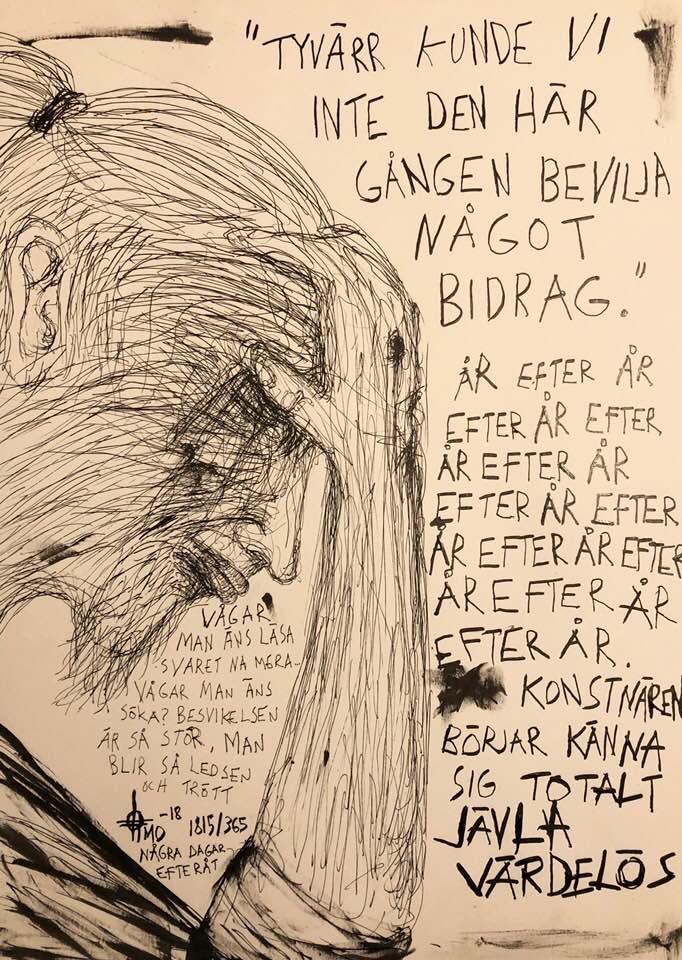 "TYVÄRR KUNDE VI
INTE DEN HÄR
GÅNGEN BEVILJA
NÅGOT
BIDRAG."
ÅR EFTER ÅR
EFTER ÅR EFTER
ÅR EFTER ÅR
EFTER ÅR EFTER
ÅR EFTER ÅR EFTER
ÅR EFTER ÅR
EFTER ÅR.
KONSTNÄREN
BÖRJAR KÄNNA
SIG TOTALT
JÄVLA
VÄRDELÖS
VÅGAR
MAN ÄNS LÄSA
SVARET NA MERA-
VÅGAR MAN ÄNS
SÖKA? BESVIKELSEN
ÄR SÅ STOR, MAN
BLIR SÅ LEDSEN
OCH TRÖTT
-18 1815/365
NÅGRA DAGAR
EFTERÅT